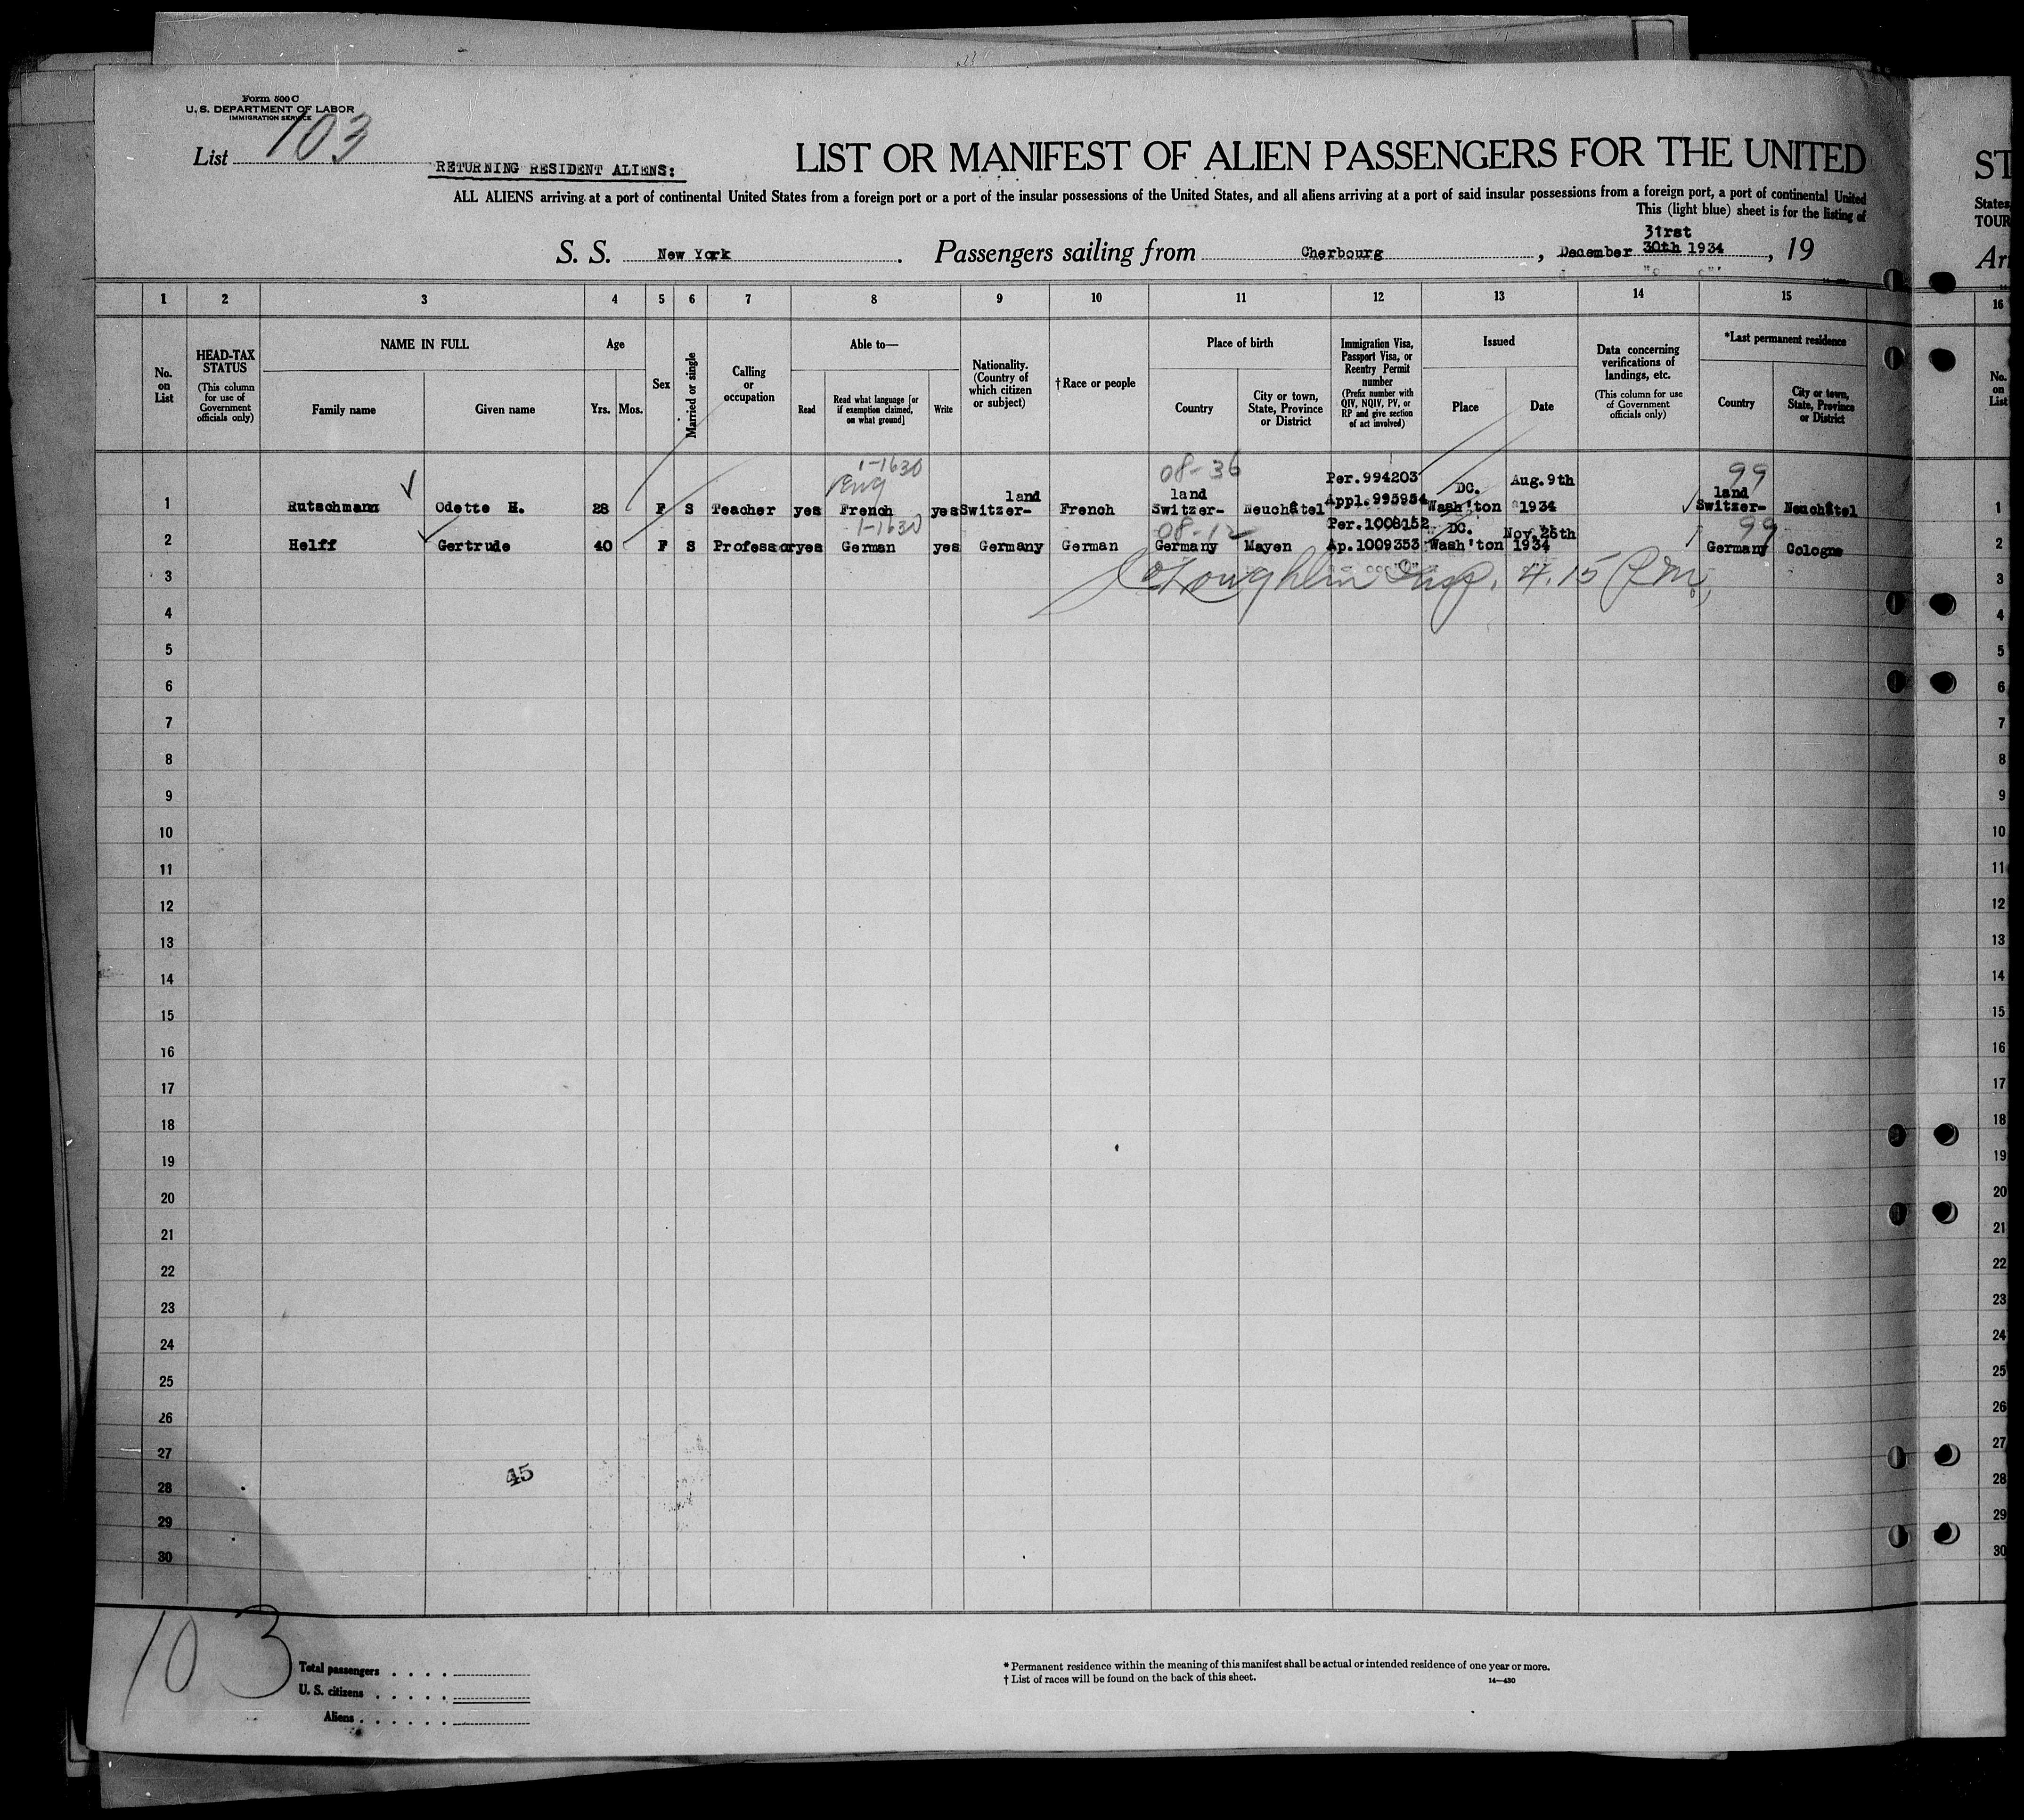 Form 500 C
U. S. DEPARTMENT OF LABOR
IMMIGRATION SERVICE
List 103
RETURNING RESIDENT ALIENS:
LIST OR MANIFEST OF ALIEN PASSENGERS FOR THE UNITED
ST
ALL ALIENS arriving at a port of continental United States from a foreign port or a port of the insular possessions of the United States, and all aliens arriving at a port of said insular possessions from a foreign port, a port of continental United
States,
This (light blue) sheet is for the listing of
TOUR
31rst
S. S. New York. Passengers sailing from Cherbourg, December 30th 1934, 19
Arr
1 2 3 4 5 6 7 8 9 10 11 12 13 14 15 16
No. on List
HEAD-TAX STATUS
(This column for use of Government officials only)
NAME IN FULL
Family name
Given name
Age
Yrs.
Mos.
Sex
Married or single
Calling or occupation
Able to—
Read
Read what language [or if exemption claimed, on what ground]
Write
Nationality. (Country of which citizen or subject)
† Race or people
Place of birth
Country
City or town, State, Province or District
Immigration Visa, Passport Visa, or Reentry Permit number
(Prefix number with QIV, NQIV, PV, or RP and give section of act involved)
Issued
Place
Date
Data concerning verifications of landings, etc.
(This column for use of Government officials only)
*Last permanent residence
Country
City or town, State, Province or District
No. on List
1-1630 08-36 99
Eng land land Per. 994203 DC. Aug. 9th land
1 Rutschmann Odette H. 28 F S Teacher yes French yes Switzer- French Switzer- Neuchâtel Appl. 995954 Wash'ton 1934 Switzer- Neuchâtel 1
1-1630 08-12 Per. 1008152 DC. Nov. 26th 99
2 Helff Gertrude 40 F S Professor yes German yes Germany German Germany Mayen Ap. 1009353 Wash'ton 1934 Germany Cologne 2
3 Insp. 4.15 P.M. 3
4 4
5 5
6 6
7 7
8 8
9 9
10 10
11 11
12 12
13 13
14 14
15 15
16 16
17 17
18 18
19 19
20 20
21 21
22 22
23 23
24 24
25 25
26 26
27 27
45
28 28
29 29
30 30
103
Total passengers . . . .
U. S. citizens . . . . .
Aliens . . . . . .
* Permanent residence within the meaning of this manifest shall be actual or intended residence of one year or more.
† List of races will be found on the back of this sheet.
14—430